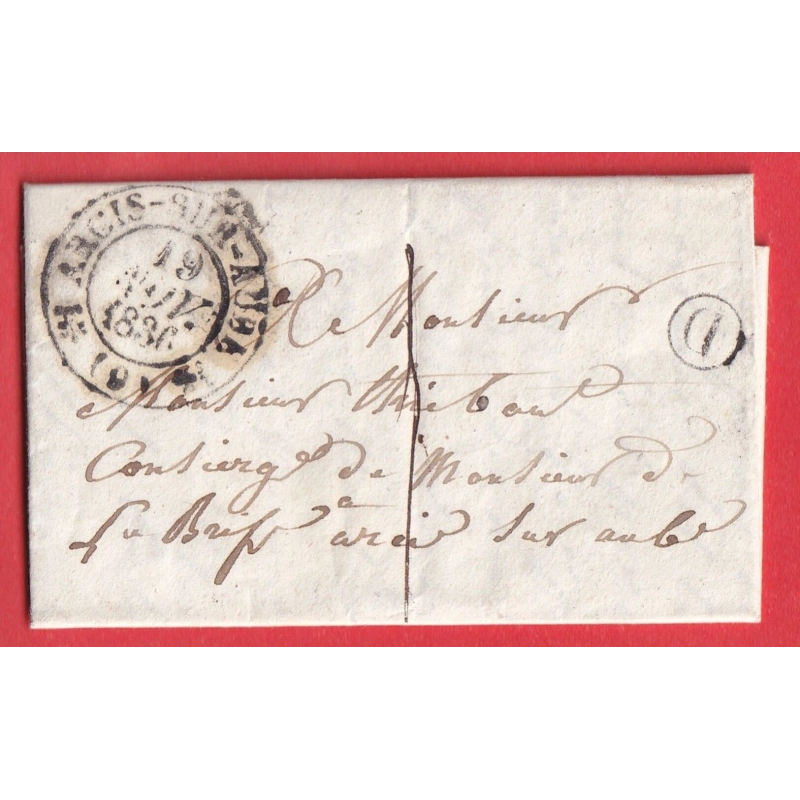 ARCIS-SUR-AUBE
19
NOV.
1836
(9)
A Monsieur
Monsieur thiebaut
Consierge de Monsieur de
La Brife a arcie sur aube
1
D